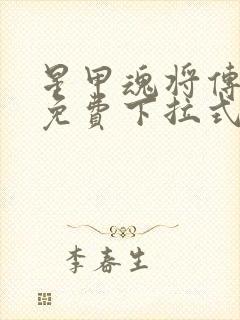 星甲魂将傳
免費下拉式
李春生